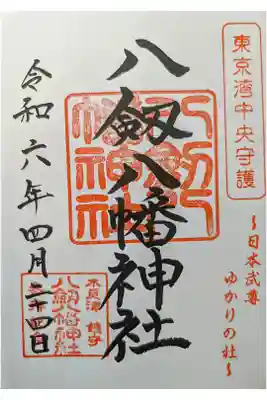 東京湾中央守護
八剱八幡神社
～日本武尊
ゆかりの社～
令和六年四月二十四日
八剱八幡神社
木更津 鎮守
八剱八幡神社